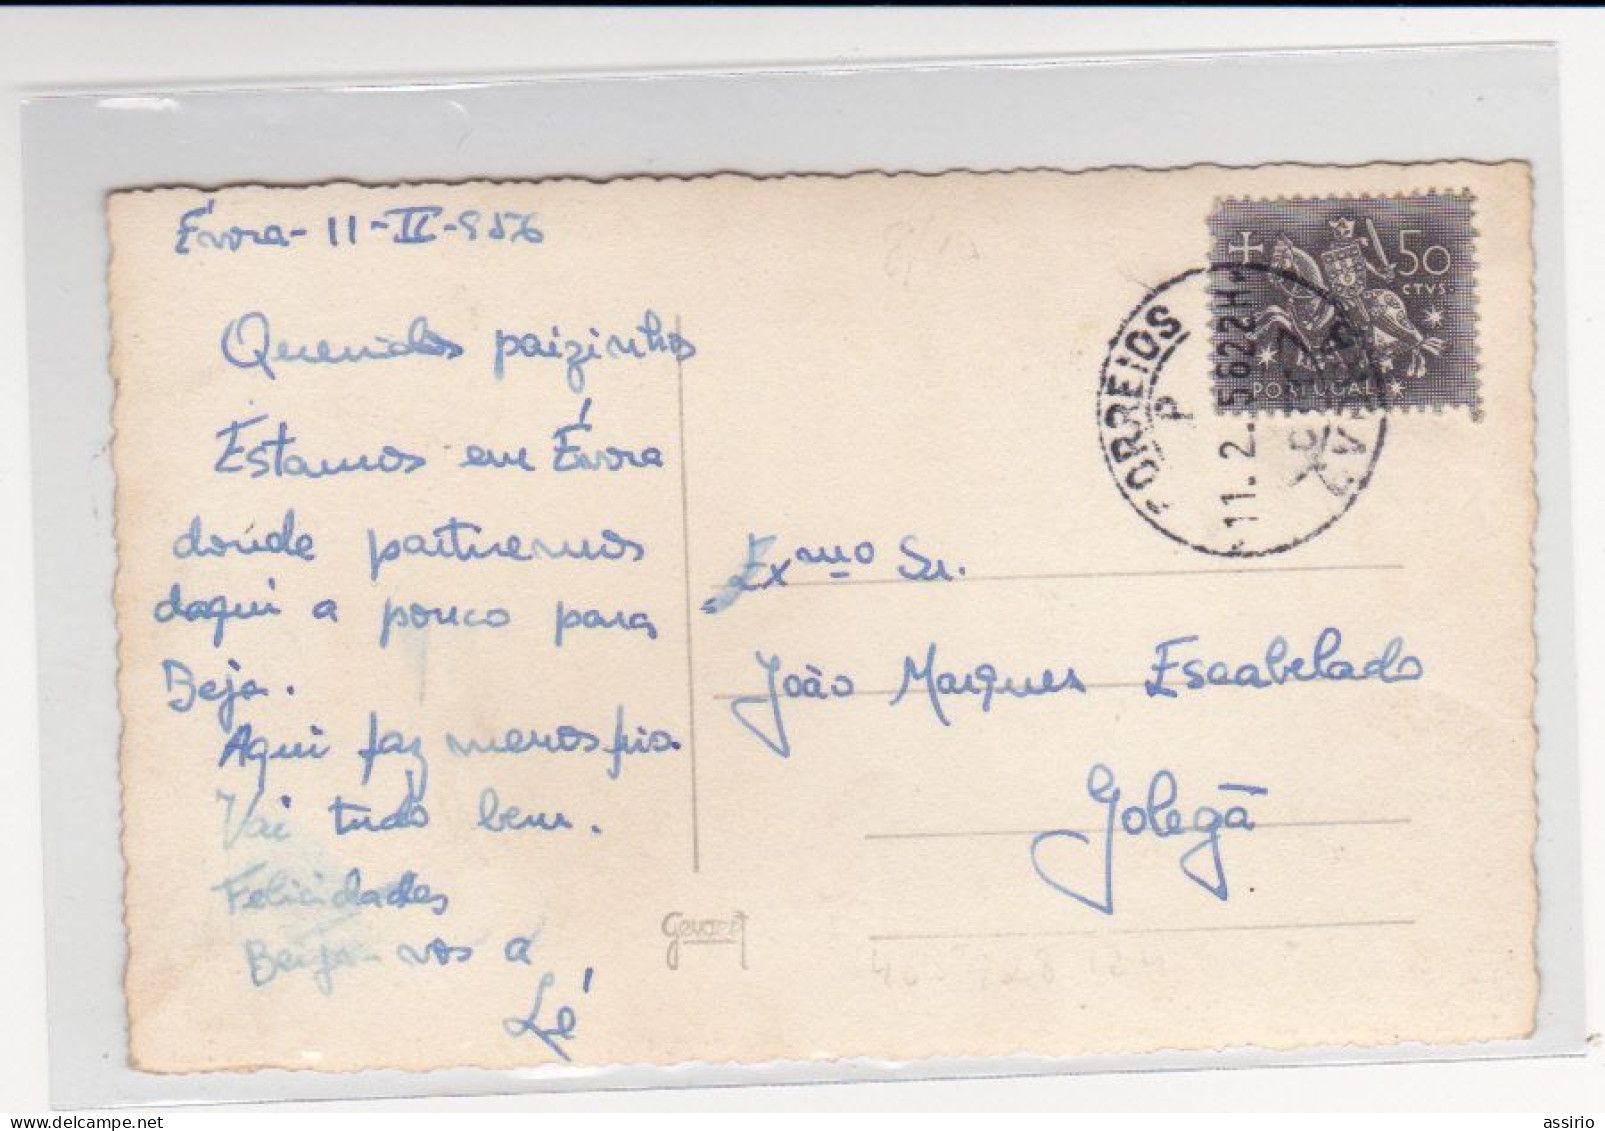 Évora - 11-II-956
Queridos paizinhos
Estamos em Évora
donde partiremos
daqui a pouco para
Beja.
Aqui faz menos frio.
Vai tudo bem.
Felicidades
Beija-vos a
Lé
50
CTVS.
PORTUGAL
CORREIOS
P
11. 2. 56 22H
Exmo Sr.
João Marques Escabelado
Golegã
Gevaert
assirio